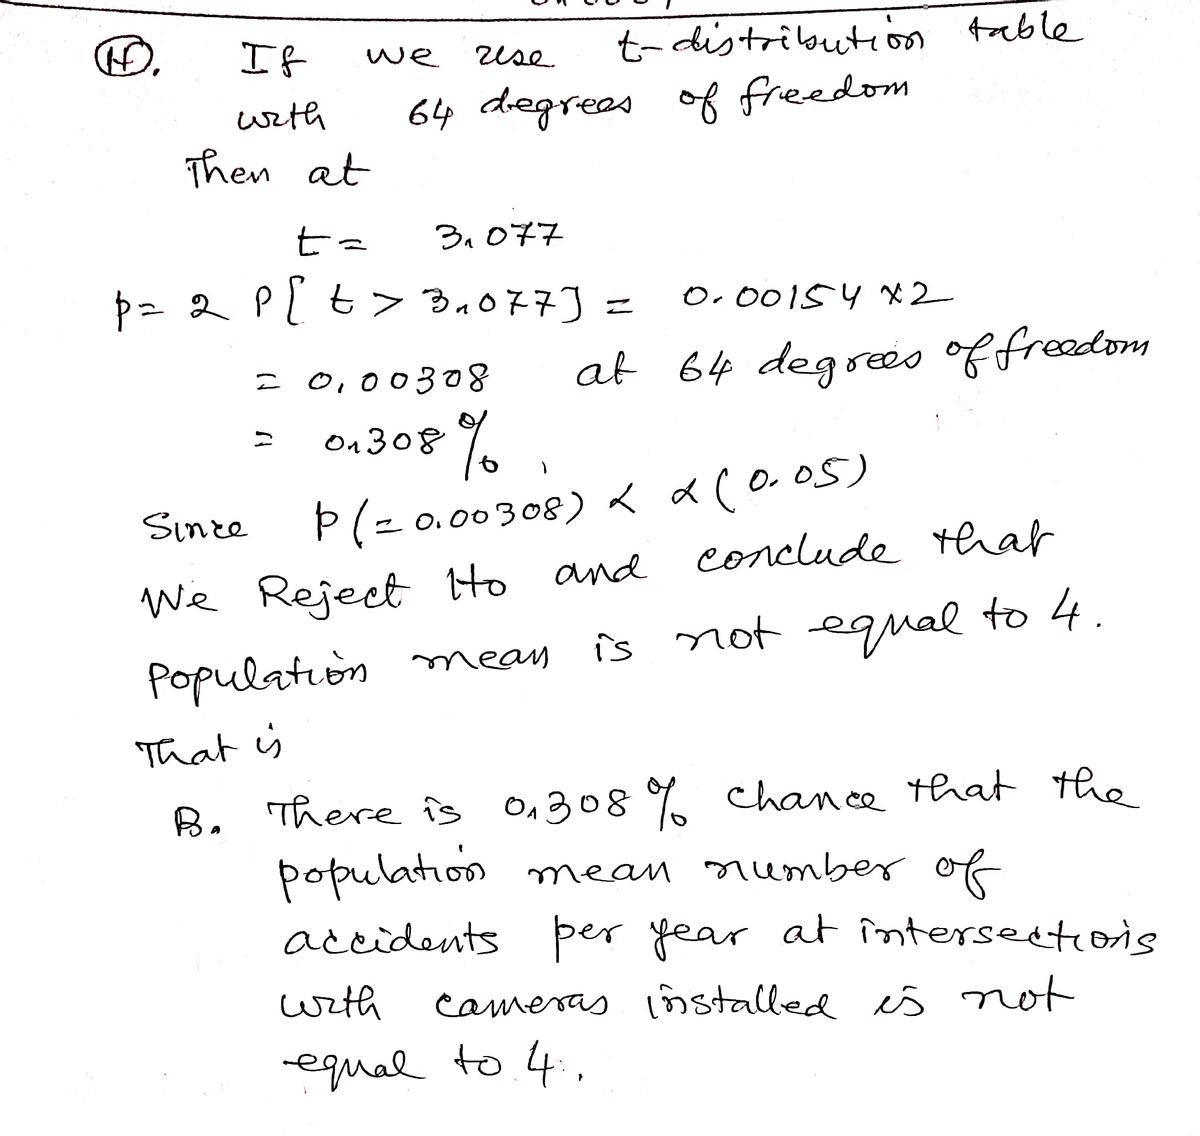 (H). If we use t-distribution table
with 64 degrees of freedom
Then at
t = 3.077
p = 2 P[ t > 3.077] = 0.00154 x2
= 0.00308 at 64 degrees of freedom
= 0.308 %.
Since p (= 0.00308) < α (0.05)
We Reject Ho and conclude that
Population mean is not equal to 4.
That is
B. There is 0.308 % chance that the
population mean number of
accidents per year at intersections
with cameras installed is not
equal to 4.